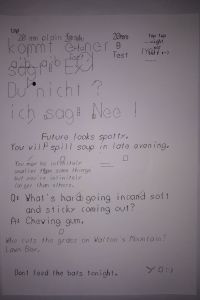 top
20 mm plain
20mm
B
Test
kommt einer
Du nicht ?
ich sag Nee !
Future looks spotty.
You will spill soup in late evening.
You may be infinitely
smaller than some things
but you're infinitely
larger than others.
Q: What's hard going in and soft
and sticky coming out?
A: Chewing gum.
Who cuts the grass on Walton's Mountain?
Lawn Boy.
Dont feed the bats tonight.